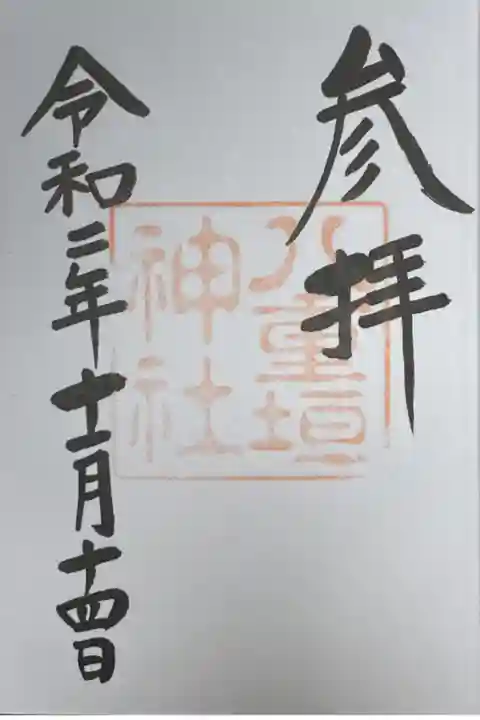 参拝
八重垣
神社
令和二年十二月十四日